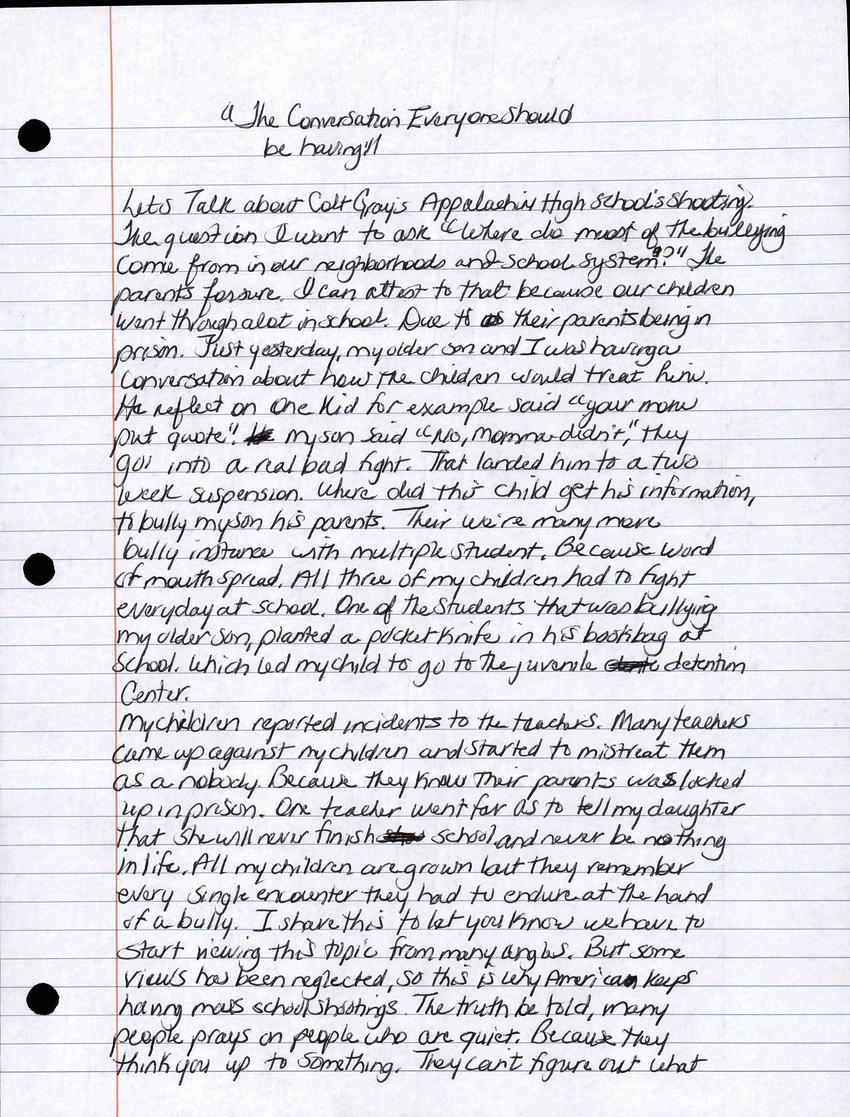 "The Conversation Everyone Should
be having"!
Lets Talk about Colt Gray's Appalachin High school's shooting.
The question I want to ask "where do most of the bullying
come from in our neighborhoods and school system"?" The
parents forsure. I can attest to that because our children
went through alot in school. Due to their parents being in
prison. Just yesterday, my older son and I was having a
conversation about how the children would treat him.
He reflect on one kid for example said "your mom
put quote". my son said "No, momma didn't," they
got into a real bad fight. That landed him to a two
week suspension. Where did this child get his information,
to bully my son his parents. Their we're many more
bully instance with multiple student. Because word
of mouth spread. All three of my children had to fight
everyday at school. One of the students that was bullying
my older son, planted a pocket knife in his bookbag at
school. Which led my child to go to the juvenile detention
Center.
My children reported incidents to the teachers. Many teachers
came up against my children and started to mistreat them
as a nobody. Because they know their parents was locked
up in prison. One teacher went far as to tell my daughter
that she will never finish school and never be nothing
in life. All my children are grown but they remember
every single encounter they had to endure at the hand
of a bully. I share this to let you know we have to
start viewing this topic from many angles. But some
views has been neglected, so this is why American keeps
having mass school shootings. The truth be told, many
people prays on people who are quiet. Because they
think you up to something. They can't figure out what